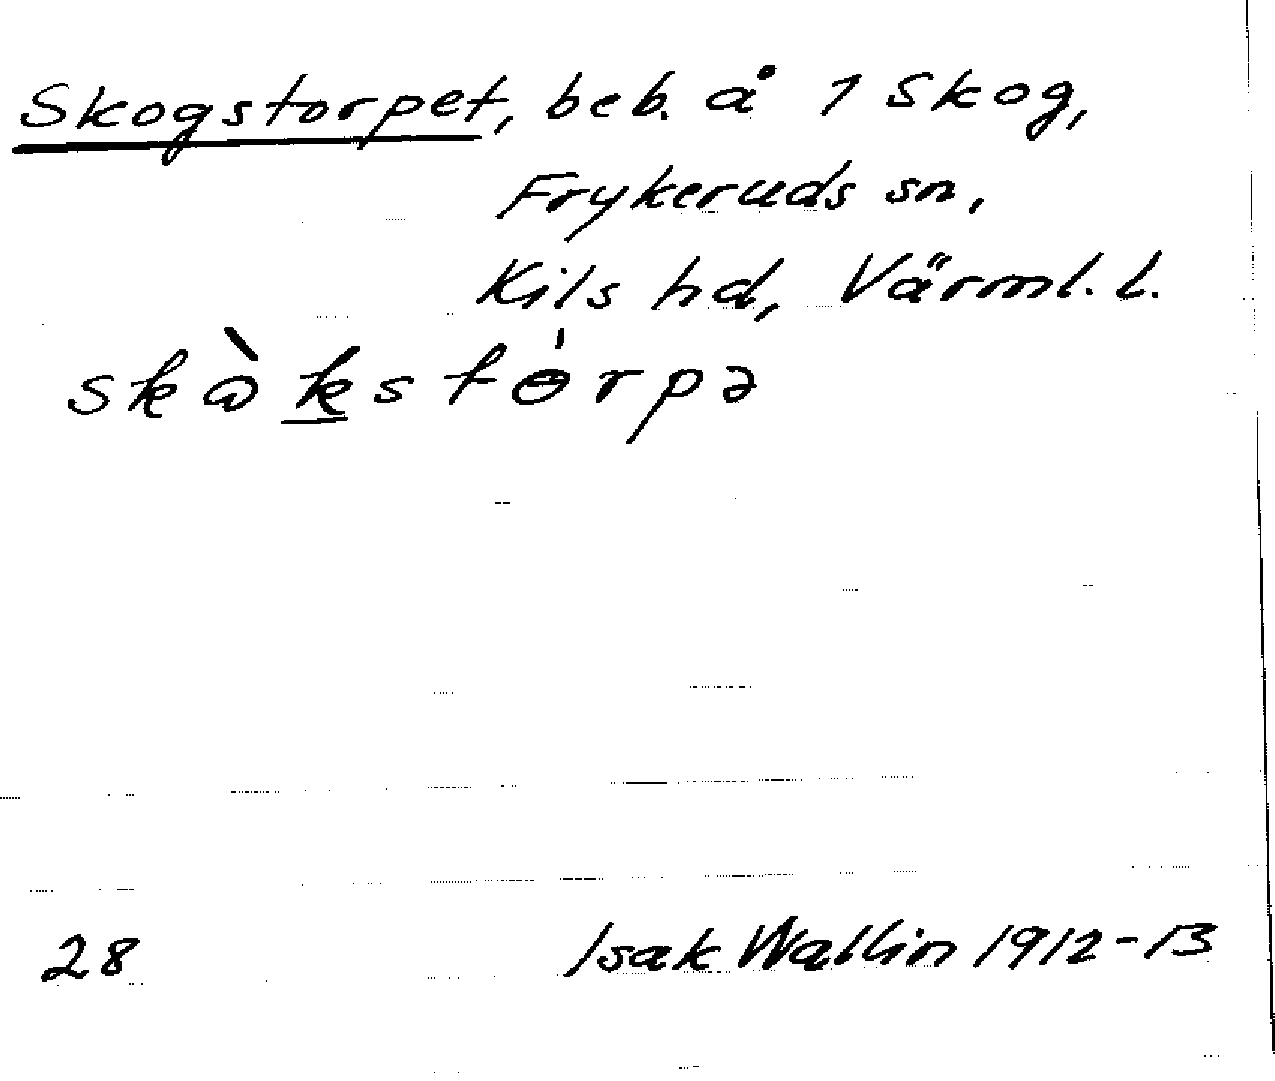 Skogstorpet, beb. å 1 Skog,
Frykeruds sn,
Kils hd, Värml. l.
skὼk̲stɵ́rpə
28
Isak Wallin 1912-13